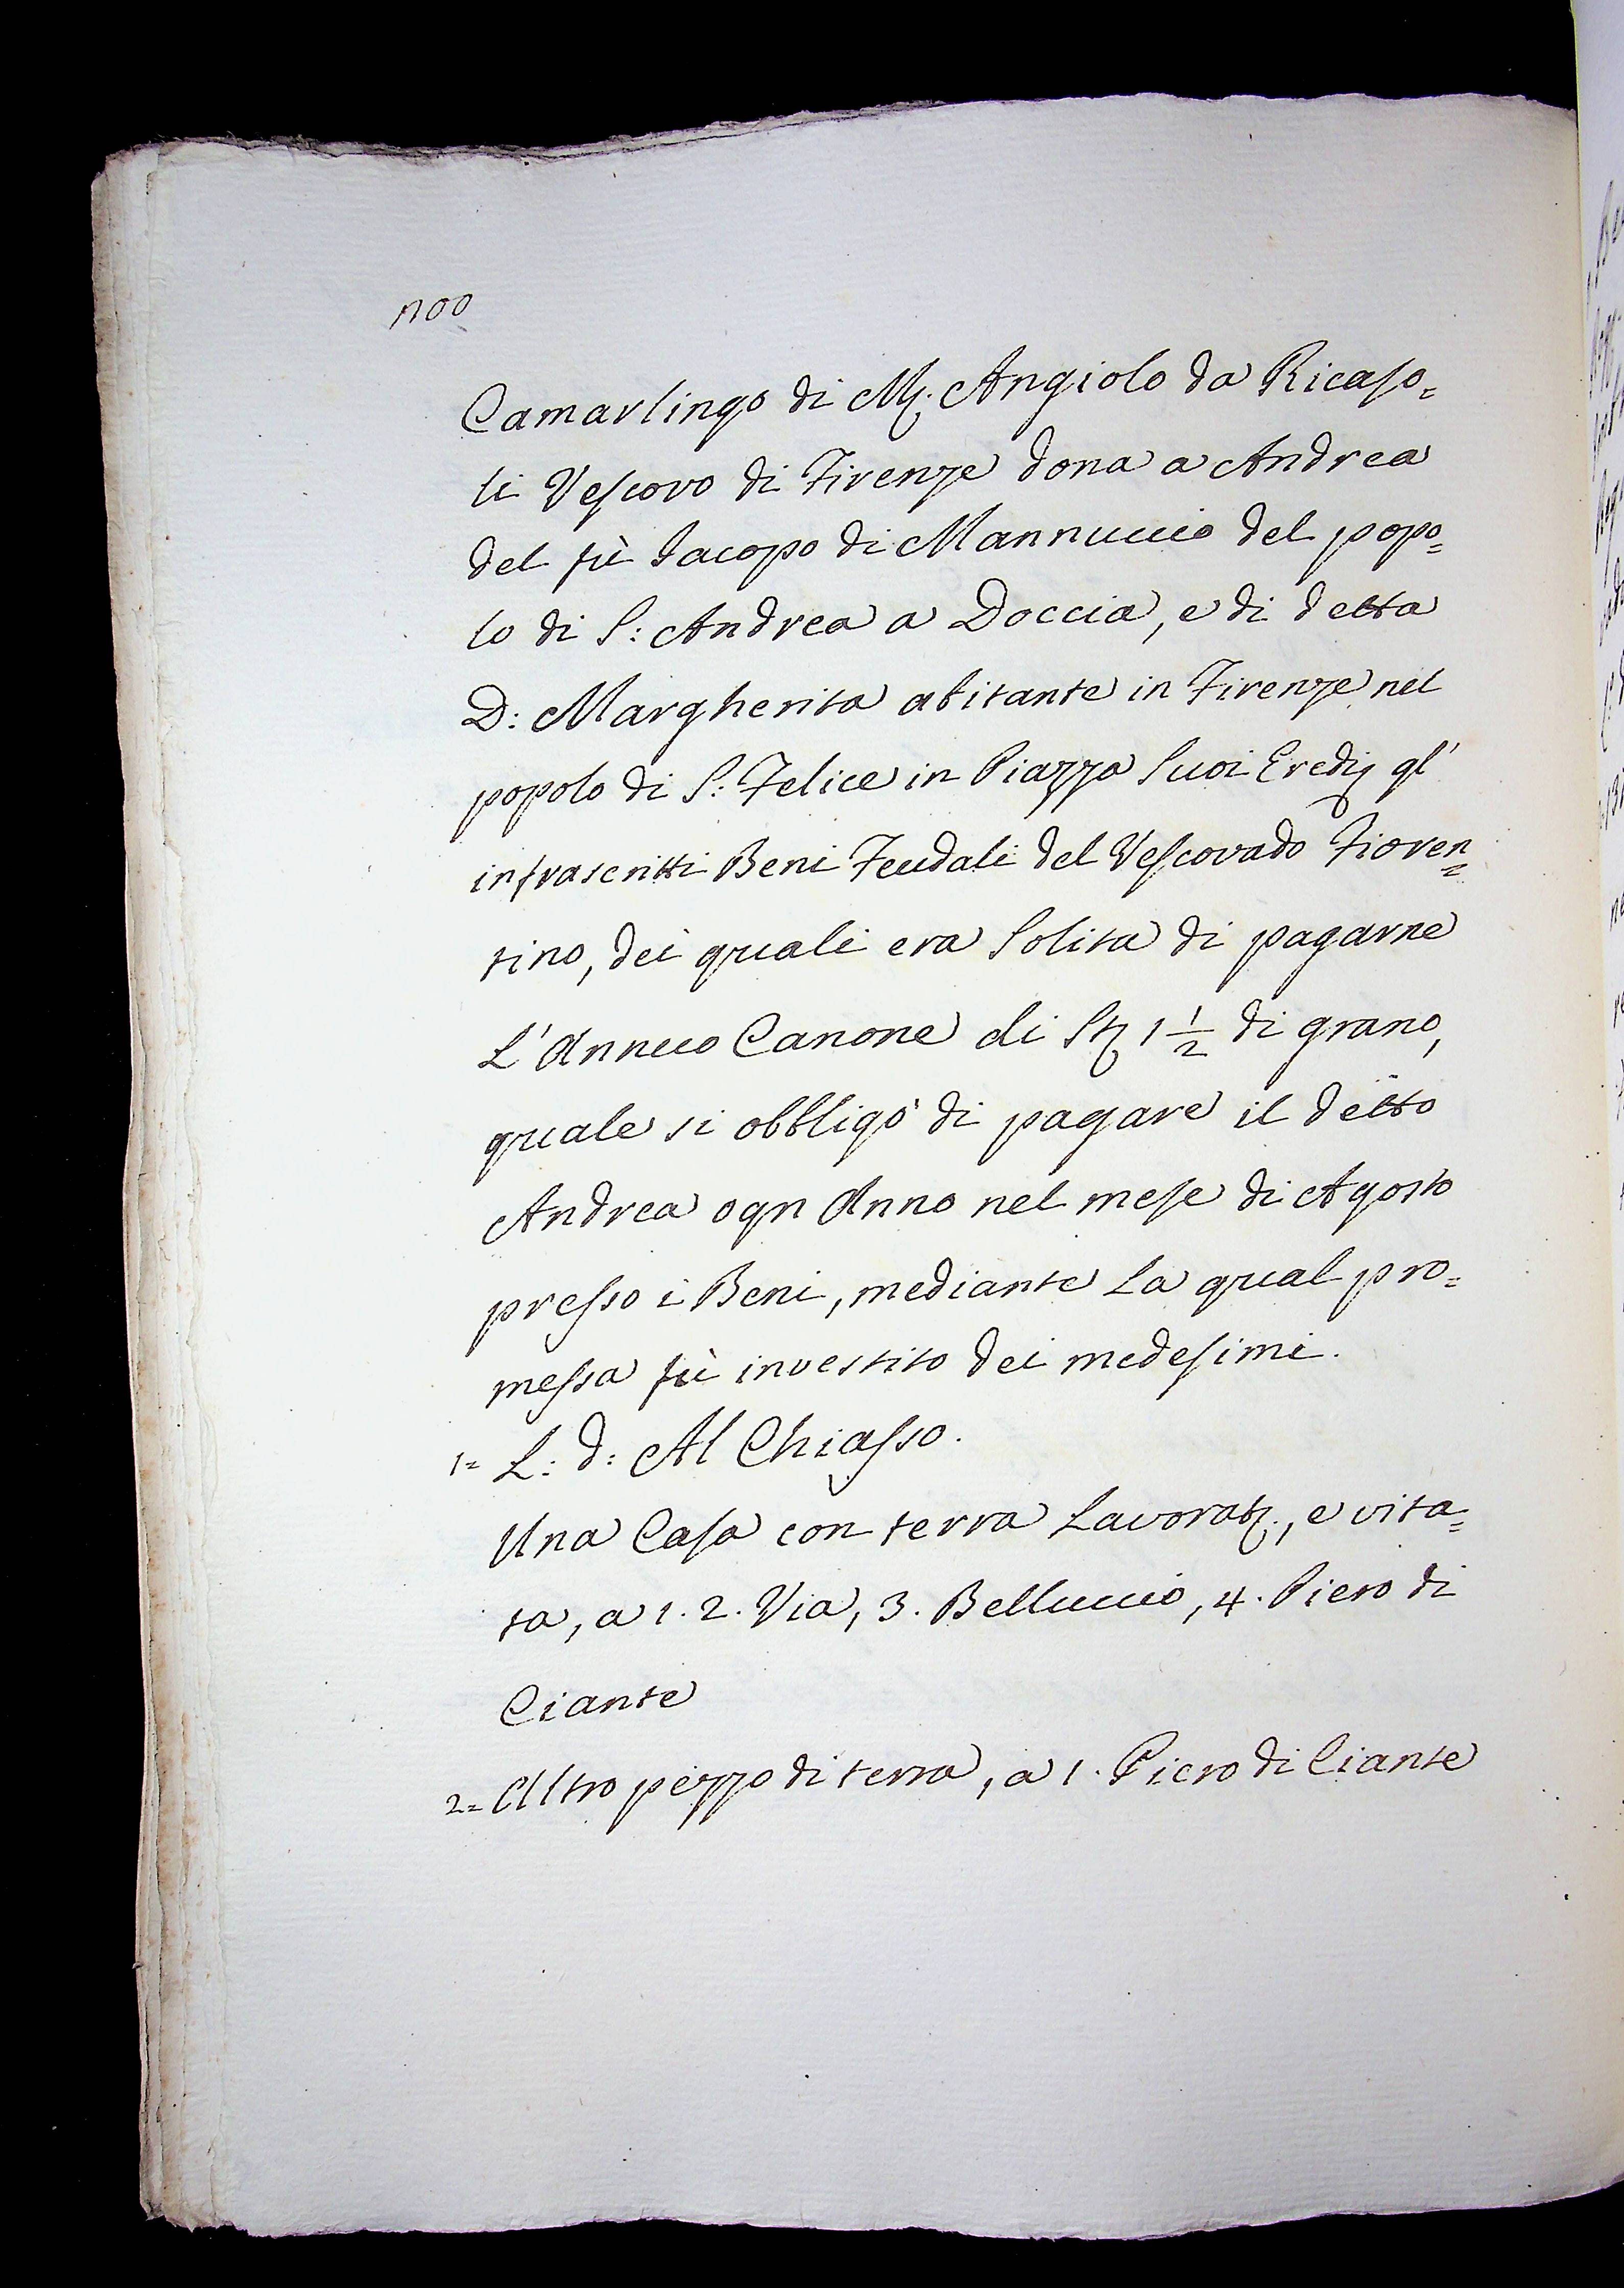 1100
Camarlingo di M: Angiolo da Ricaso=
li Vescovo di Firenze dona a Andrea
del fù Iacopo di Mannuccio del popo=
lo di S: Andrea a Doccia, e di detta
D: Margherita abitante in Firenze nel
popolo di S: Felice in Piazza Suoi Eredi gl'
infrascritti Beni Feudali del Vescovado Fioren=
tino, dei quali era Solita di pagarne
L'Annuo Canone di St 1 1/2 di grano,
quale si obbligò di pagare il detto
Andrea ogn Anno nel mese di Agosto
presso i Beni, mediante La qual pro=
messa fù investito dei medesimi.
1= L: d: Al Chiasso.
Una Casa con terra Lavorat:, e vita=
ta, a 1. 2. Via, 3. Belluccio, 4. Piero di
Ciante
2= Altro pezzo di terra, a 1. Piero di Ciante